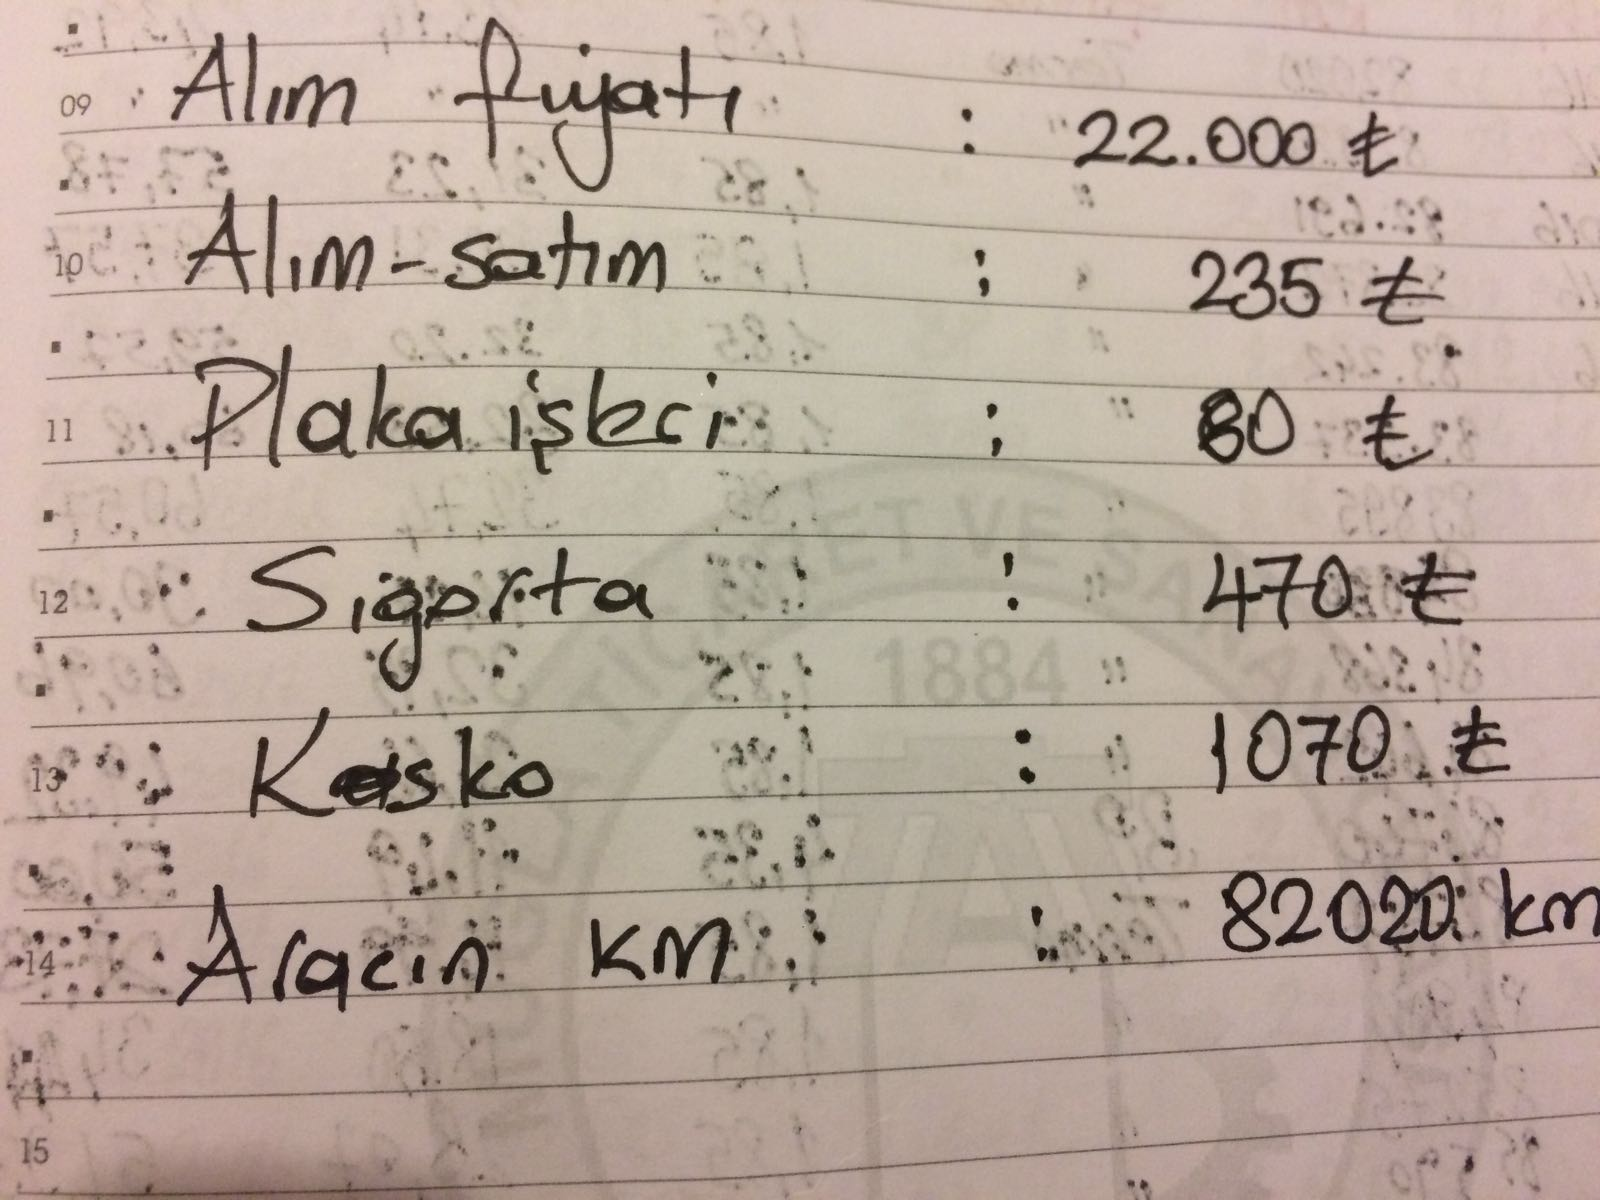 09 Alım fiyatı : 22.000 ₺
10 Alım-satım : 235 ₺
11 Plaka işleri : 80 ₺
12 Sigorta : 470 ₺
1884
13 Kasko : 1070 ₺
14 Aracın KM : 82020 km
15